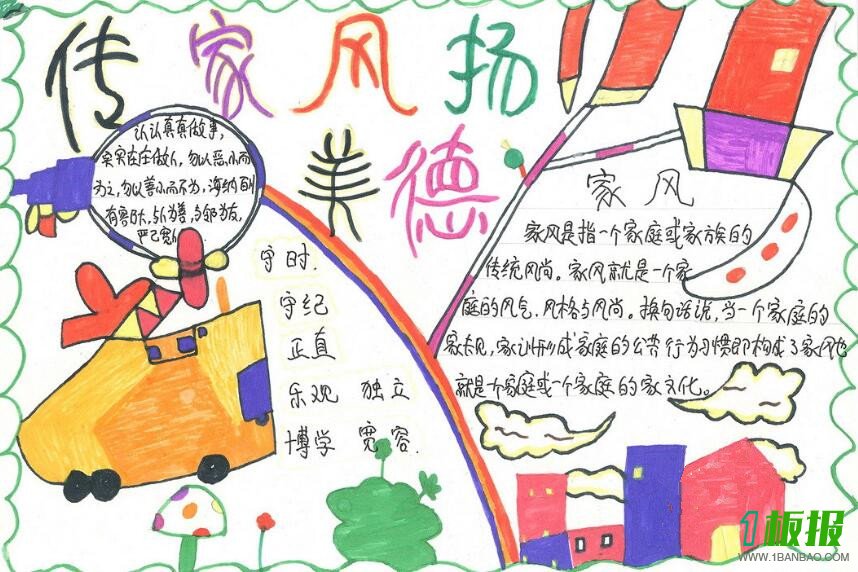 传家风扬
美德
认认真真做事,
实实在在做人,勿以恶小而
为之,勿以善小而不为,海纳百川
有容乃大,与人为善,与邻为友,
严己宽
守时.
守纪
正直
乐观 独立
博学 宽容.
家风
家风是指一个家庭或家族的
传统风尚。家风就是一个家
庭的风气、风格与风尚。换句话说,当一个家庭的
家长见,家训形成家庭的公共行为习惯即构成了家风也
就是一个家庭或一个家庭的家文化。
1板报
WWW.1BANBAO.COM